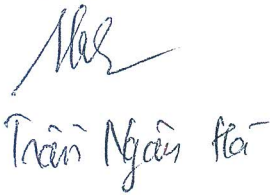 Trần Ngân Hà